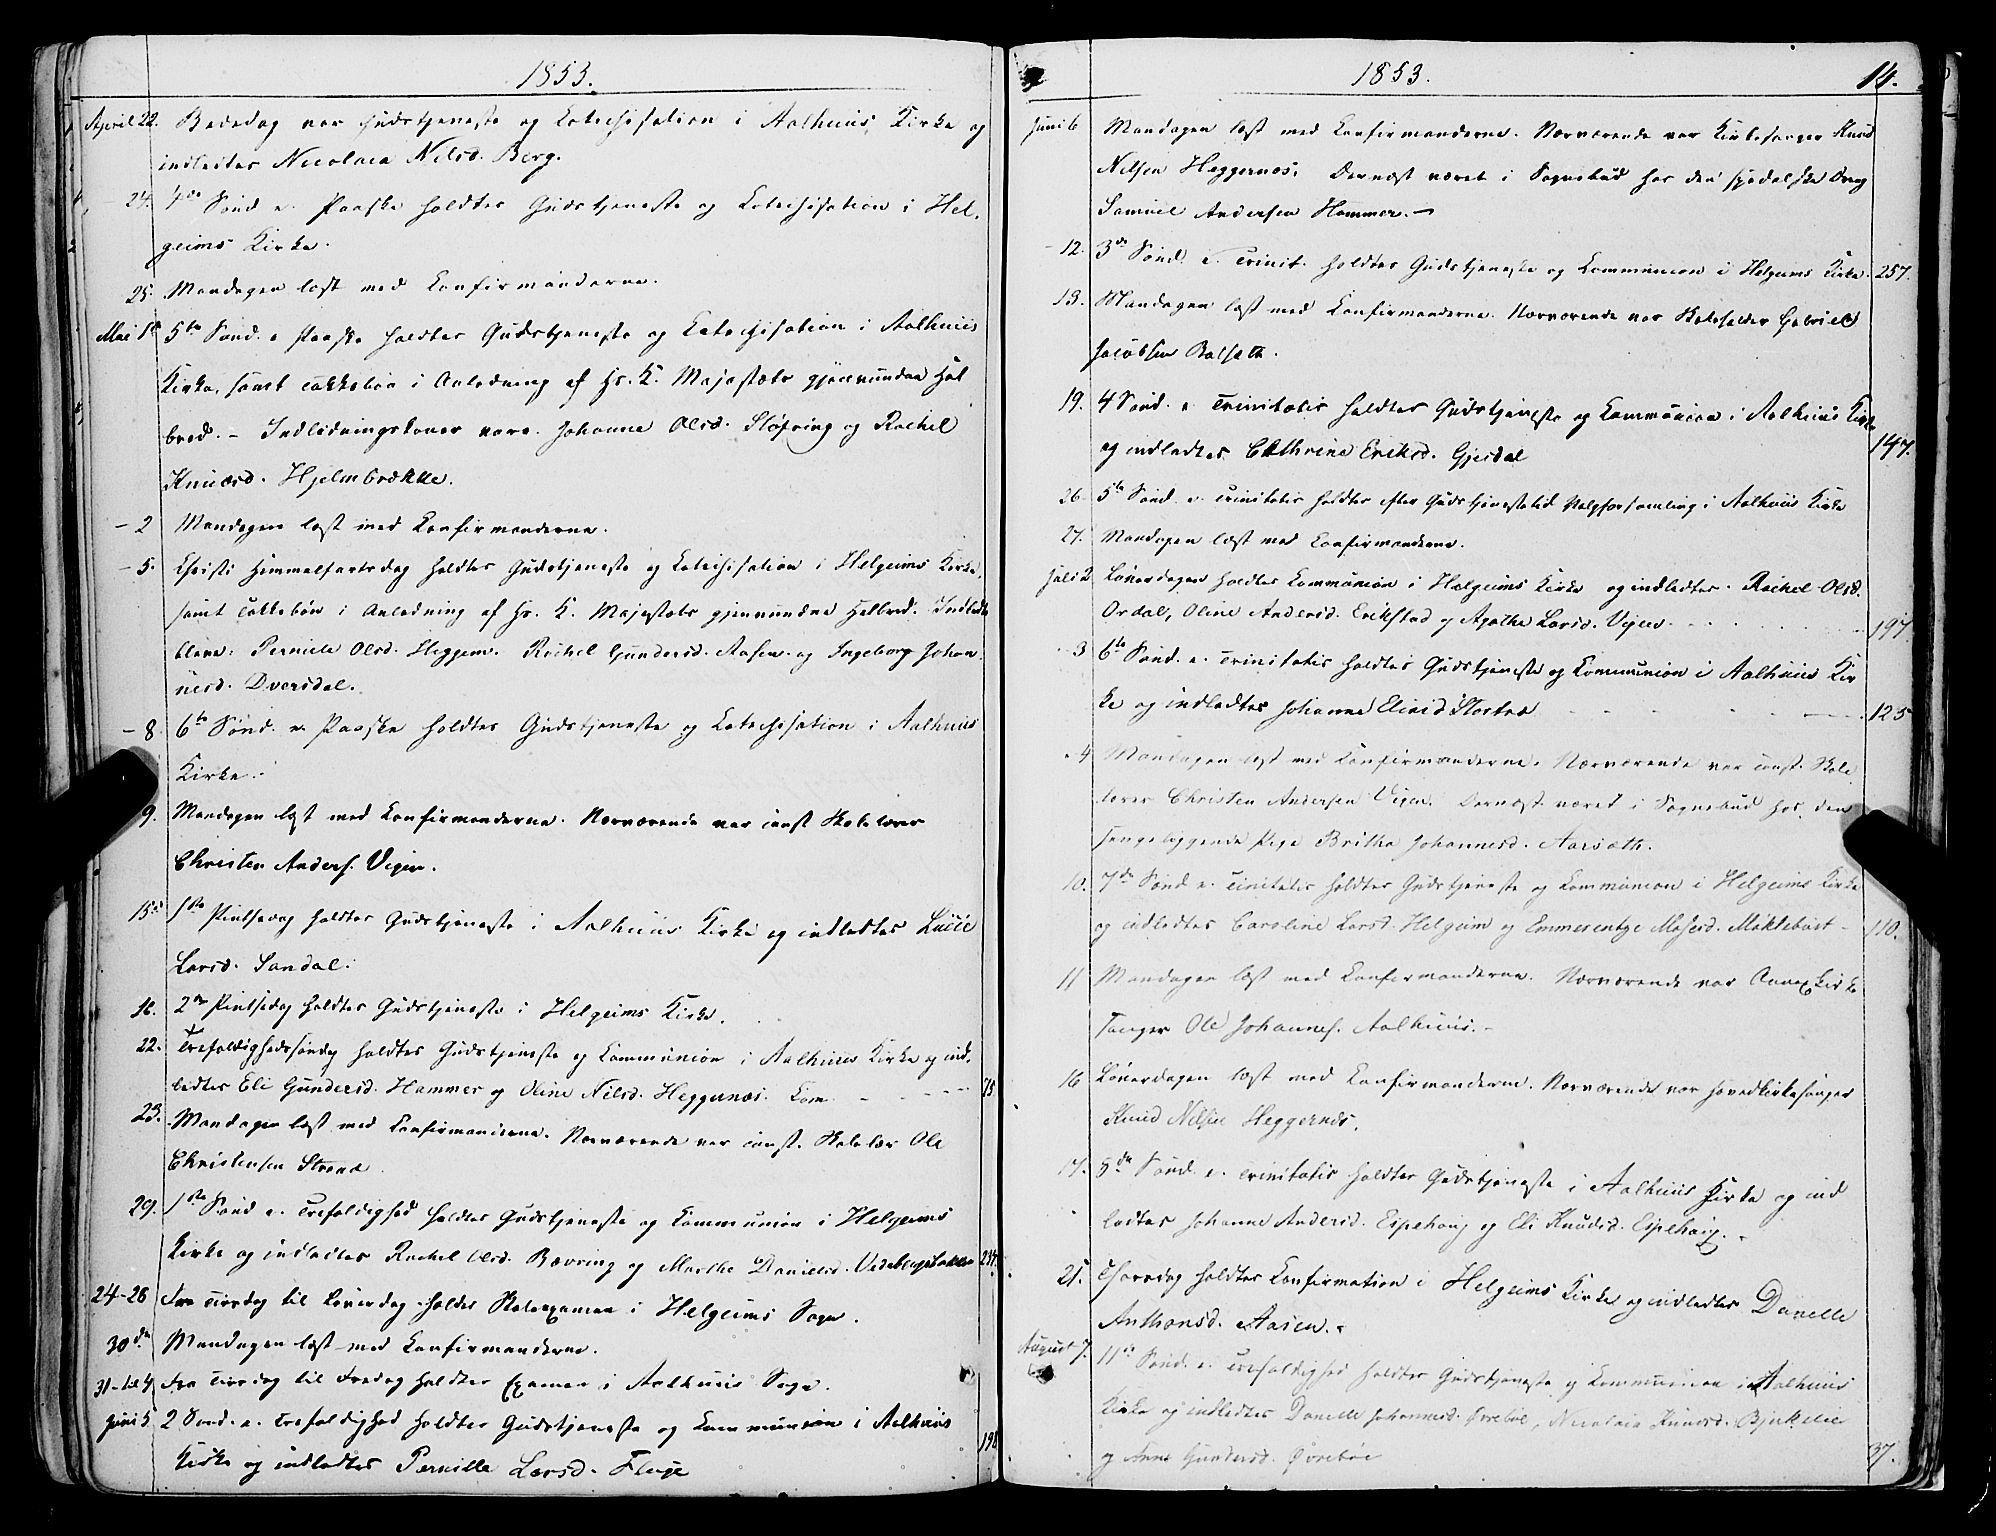 1853.
April 22. Bededag var Gudstjeneste og Catechisation i Aalhuus Kirke og
indledtes Nicolaia Nilsd. Berg.
- 24. 4de Sønd. e. Paaske holdtes Gudstjeneste og Catechisation i Hel-
geims Kirke.
25. Mandagen læst med Confirmanderne.
Mai 1ste 5te Sønd. e. Paaske holdtes Gudstjeneste og Catechisation i Aalhuus
Kirke, samt Takkebøn i Anledning af Hs. K. Majestæts gjenvundne Hel
bred. - Indledningskoner vare. Johanne Olsd. Sløfring og Rachel
Knudsd. Hjelmbrække.
- 2 Mandagen læst med Confirmanderne.
- 5. Christi Himmelfartsdag holdtes Gudstjeneste og Catechisation i Helgeims Kirke,
samt Takkebøn i Anledning af Hs. K. Majestæts gjenvundne Helbred. Indledte
bleve: Pernille Olsd. Heggem. Rachel Gundersd. Aasen. og Ingeborg Johan
nesd. Dvergsdal.
- 8. 6te Sønd. e. Paaske holdtes Gudstjeneste og Catechisation i Aalhuus
Kirke.
9. Mandagen læst med Confirmanderne. Nærværende var const. Skolelærer
Christen Anders. Vigen.
15de 1ste Pintsedag holdtes Gudstjeneste i Aalhuus Kirke og indledtes Lucie
Larsd. Sandal.
16. 2den Pintsedag holdtes Gudstjeneste i Helgeims Kirke.
22. Trefoldighedssøndag holdtes Gudstjeneste og Communion i Aalhuus Kirke og ind-
ledtes Eli Gundersd. Hammer og Oline Nilsd. Heggernæs. Com. - - - - 75
23. Mandagen læst med Confirmanderne. Nærværende var const. Skolelær Ole
Christensen Strand
29. 1ste Sønd e. Trefoldighed holdtes Gudstjeneste og Communion i Helgeims
Kirke og indledtes Rachel Olsd. Bævring og Marthe Danielsd.
24-28 Fra Tirsdag til Løverdag holdtes Skoleexamen i Helgeims Sogn.
30de Mandagen læst med Confirmanderne.
31-til 4 Fra Tirsdag til Fredag holdtes Examen i Aalhuus Sogn.
Juni 5. 2 Sønd. e. Trefoldighed holdtes Gudstjeneste og Communion i Aalhuus 198
Kirke og indledtes Pernille Larsd. Fluge
1853. 14.
Juni 6 Mandagen læst med Confirmanderne. Nærværende var Kirkesanger Knud
Nilsen Heggernæs. Dernæst været i Sognebud hos den spedalske Dreng
Samuel Andersen Hammer. -
- 12. 3de Sønd. e. Trinit. holdtes Gudstjeneste og Communion i Helgeims Kirke. 257.
13. Mandagen læst med Confirmanderne. Nærværende var Skoleholder Gabriel
Jacobsen Bolsæth.
19. 4 Sønd. e. Trinitatis holdtes Gudstjeneste og Communion i Aalhuus Kirke
og indledtes Cathrine Eriksd. Gjesdal 147.
26 5te Sønd. e. Trinitatis holdtes efter Gudstjenestetid Valgforsamling i Aalhuus Kirke
27. Mandagen læst med Confirmanderne.
Juli 2 Løverdagen holdtes Communion i Helgeims Kirke og indledtes. Rachel Olsd.
Ordal, Oline Andersd. Erikstad og Agathe Larsd. Vigen. - - - - 197.
- 3 6te Sønd. e. Trinitatis holdtes Gudstjeneste og Communion i Aalhuus Kir
ke og indledtes Johanne Eliasd - - - - 125
- 4 Mandagen læst med Confirmanderne. Nærværende var const. Skole
lærer Christen Andersen Vigen. Dernæst været i Sognebud hos den
sengeliggende Pige Britha Johannesd. Aarsæth.
10. 7de Sønd e. Trinitatis holdtes Gudstjeneste og Communion i Helgeims Kirke
og indledtes Caroline Larsd. Helgeim og Emmerentze Mosesd. Myklebust - 110.
11 Mandagen læst med Confirmanderne. Nærværende var Annexkirke
sanger Ole Johannes. Aalhuus. -
16 Løverdagen læst med Confirmanderne. Nærværende var Hovedkirkesanger
Knud Nilsen Heggernæs.
17. 8de Sønd. e. Trinitatis holdtes Gudstjeneste i Aalhuus Kirke og ind
ledtes Johanne Andersd. Espehoug og Eli Knudsd. Espehoug. -
21. Thorsdag holdtes Confirmation i Helgeims Kirke og indledtes Danelle
Anthonsd. Aasen. -
August 7. 11te Sønd. e. Trefoldighed holdtes Gudstjeneste og Communion i Aalhuus
Kirke og indledtes Danelle Johannesd. Øvrebøe, Nicolaia Knudsd. Bjerkelie
og Anne Gundersd. Øvrebøe 37.